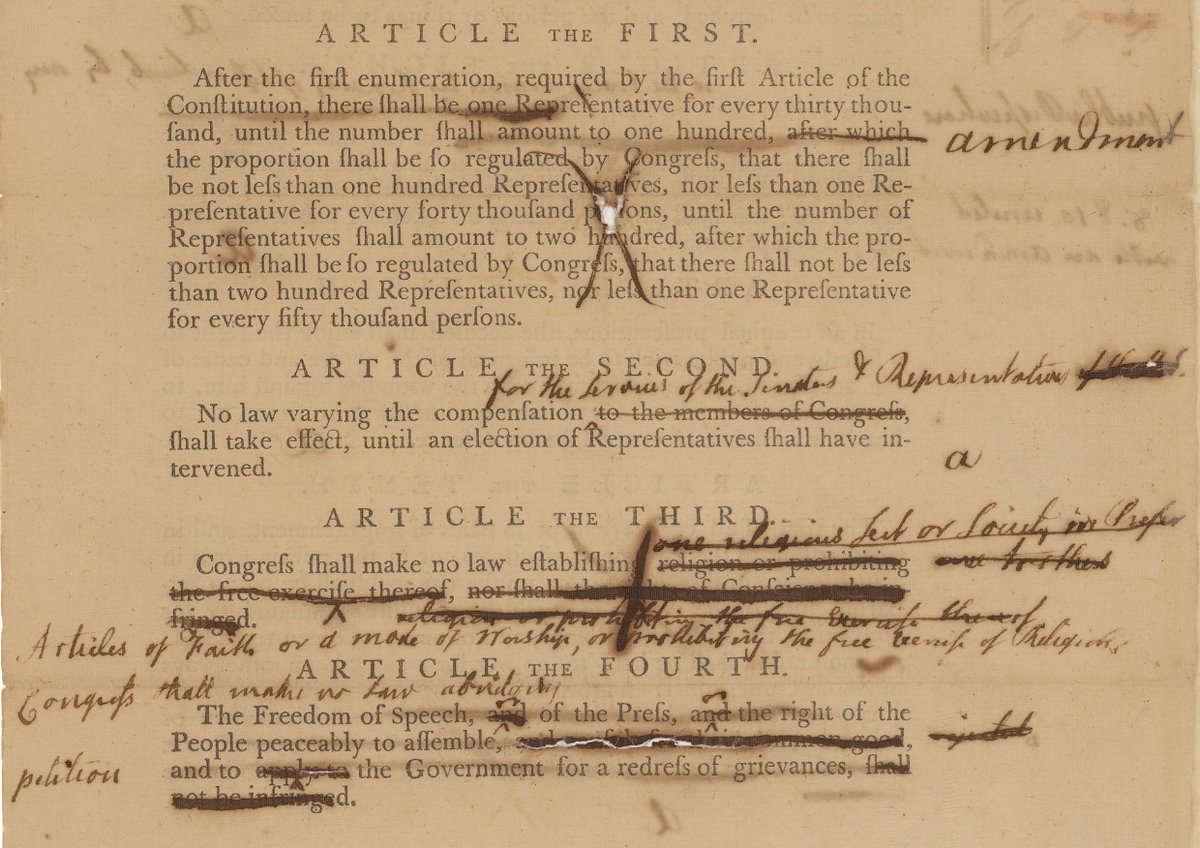 ARTICLE THE FIRST.
After the firſt enumeration, required by the firſt Article of the
Conſtitution, there ſhall be one Repreſentative for every thirty thou-
ſand, until the number ſhall amount to one hundred, after which
amendment
the proportion ſhall be ſo regulated by Congreſs, that there ſhall
be not leſs than one hundred Repreſentatives, nor leſs than one Re-
preſentative for every forty thouſand perſons, until the number of
Repreſentatives ſhall amount to two hundred, after which the pro-
portion ſhall be ſo regulated by Congreſs, that there ſhall not be leſs
than two hundred Repreſentatives, nor leſs than one Repreſentative
for every fifty thouſand perſons.
ARTICLE THE SECOND.
for the services of the Senators & Representatives
No law varying the compenſation to the members of Congreſs,
ſhall take effect, until an election of Repreſentatives ſhall have in-
tervened.
a
ARTICLE THE THIRD.
one religious Sect or Society in
Congreſs ſhall make no law eſtabliſhing religion or prohibiting
the free exerciſe thereof, nor ſhall the rights of Conſcience be in-
fringed.
religion or prohibiting the free Exercise thereof
Articles of Faith or a mode of Worship, or prohibiting the free Exercise of Religion,
ARTICLE THE FOURTH.
Congreſs shall make no Law abridging
The Freedom of Speech, and of the Preſs, and the right of the
People peaceably to aſſemble, common good,
petition
and to apply to the Government for a redreſs of grievances, ſhall
not be infringed.